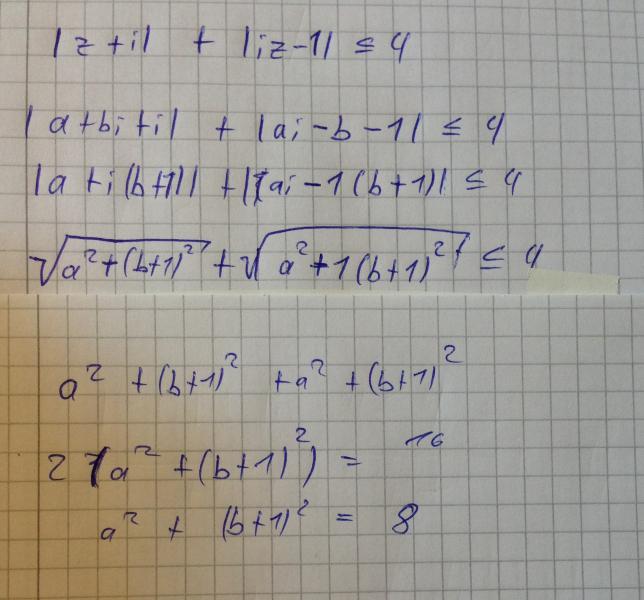 |z+i| + |iz-1| ≤ 4
|a+bi+i| + |ai-b-1| ≤ 4
|a+i(b+1)| + |ai-1(b+1)| ≤ 4
√(a²+(b+1)²) + √(a²+1(b+1)²) ≤ 4
a² + (b+1)² + a² + (b+1)²
2(a² + (b+1)²) = 16
a² + (b+1)² = 8